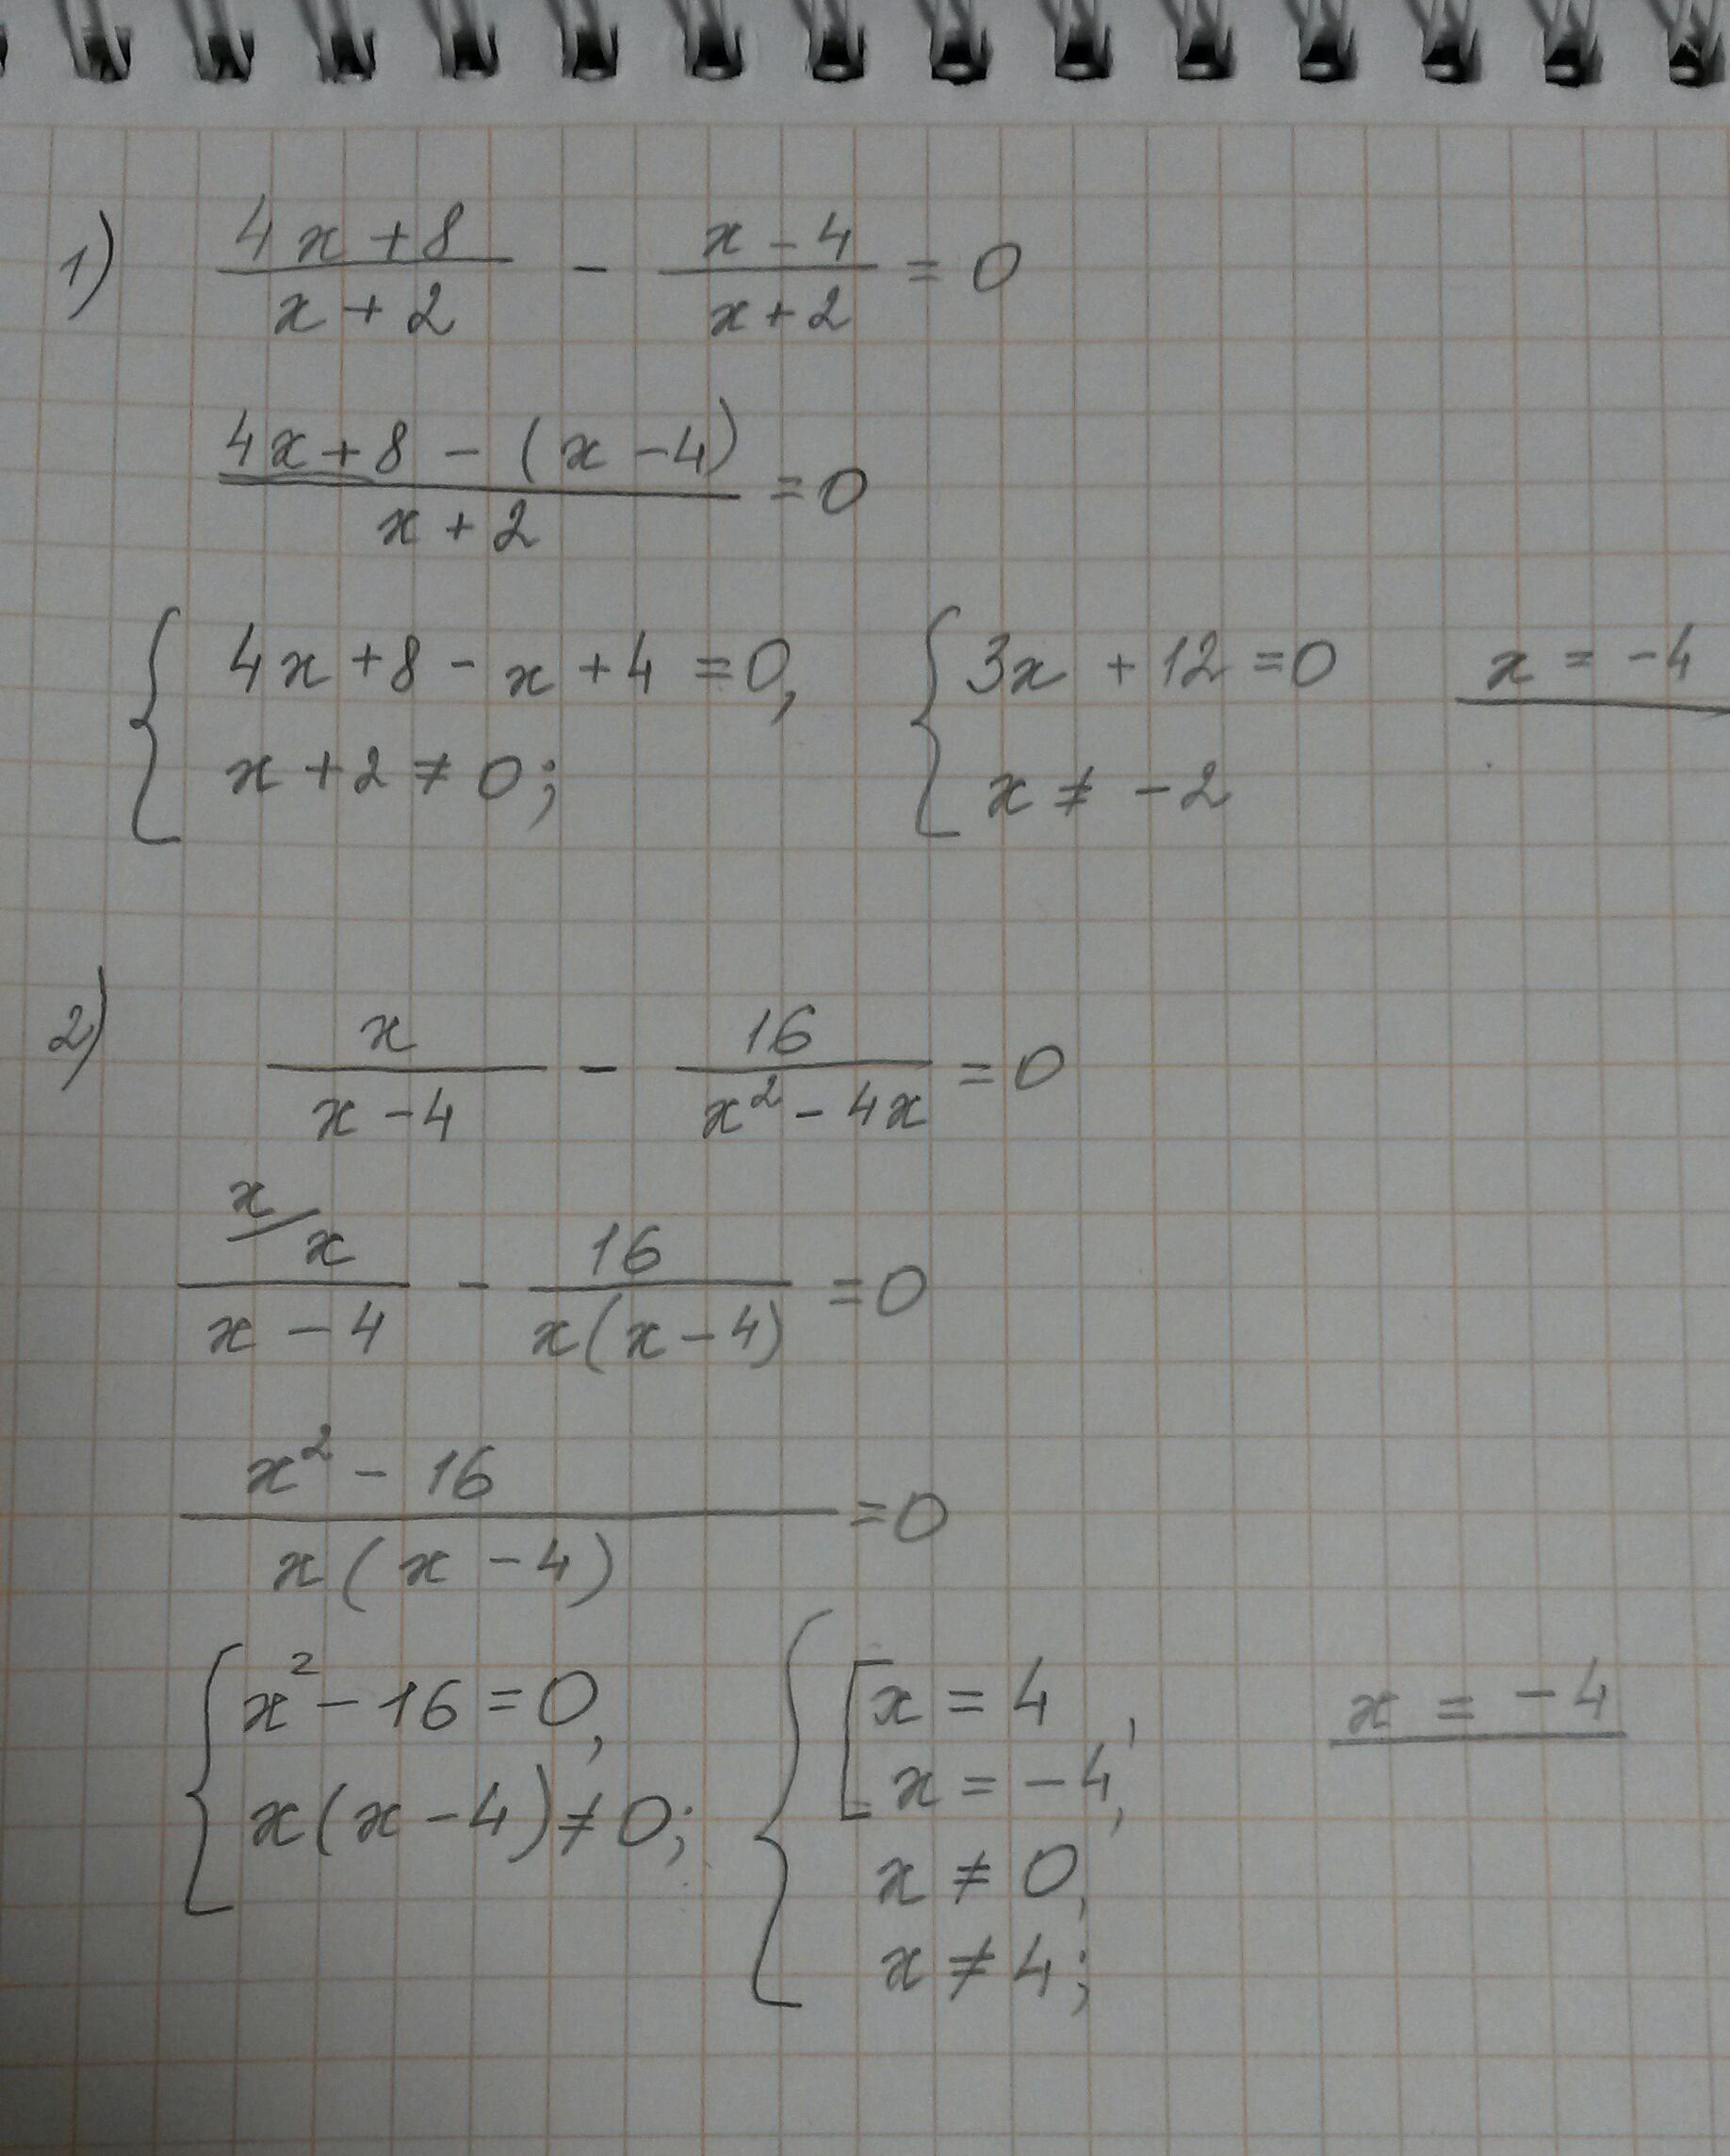 1) (4x+8)/(x+2) - (x-4)/(x+2) = 0
(4x+8-(x-4))/(x+2) = 0
{ 4x+8-x+4=0, { 3x+12=0 x = -4
x+2≠0; x ≠ -2
2) x/(x-4) - 16/(x²-4x) = 0
x/ x/(x-4) - 16/(x(x-4)) = 0
(x²-16)/(x(x-4)) = 0
{ x²-16=0, { [ x = 4, x = -4
x(x-4)≠0; x = -4,
x ≠ 0,
x ≠ 4;